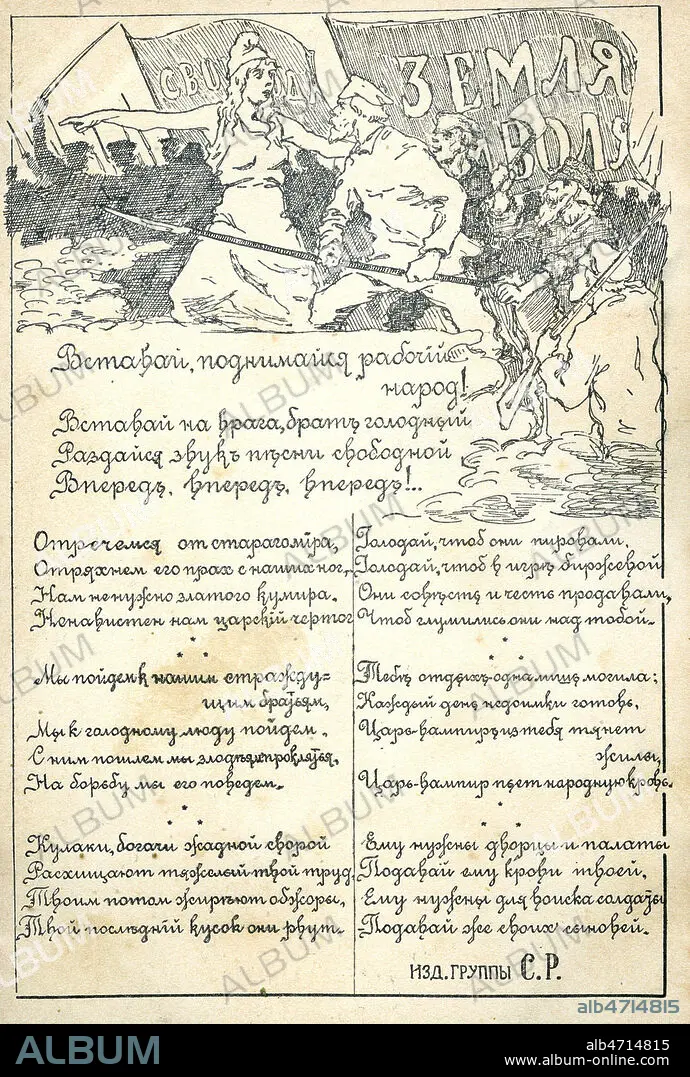 СВОБОДА
ЗЕМЛЯ
ВОЛЯ
Вставай, поднимайся рабочій
народ!
Вставай на врага, братъ голодный
Раздайся звукъ пѣсни свободной
Впередъ, впередъ, впередъ!..
Отречемся от стараго міра,
Отряхнем его прах с наших ног,
Нам ненужно златого кумира.
Ненавистен нам царскій чертог
Мы пойдем к нашим стражду=
щим братьям,
Мы к голодному люду пойдем.
С ним пошлем мы злодѣям проклятья,
На борьбу мы его поведем.-
Кулаки, богачи жадной сворой
Расхищают тяжелый твой труд,
Твоим потом жирѣют обжоры,
Твой послѣдній кусок они рвут.-
Голодай, чтоб они пировали,
Голодай, чтоб в игрѣ биржевой
Они совѣсть и честь продавали,
Чтоб глумились они над тобой.-
Тебѣ отдыхъ-одна лишь могила;
Каждый день недоимки готовь,
Царь-вампиръ из тебя тянет
жилы,
Царь-вампир пьет народную кровь.
Ему нужны дворцы и палаты
Подавай ему крови твоей,
Ему нужны для войска солдаты
Подавай же своих сыновей.-
ИЗД. ГРУППЫ С.Р.
alb4714815
ALBUM
alb4714815
www.album-online.com